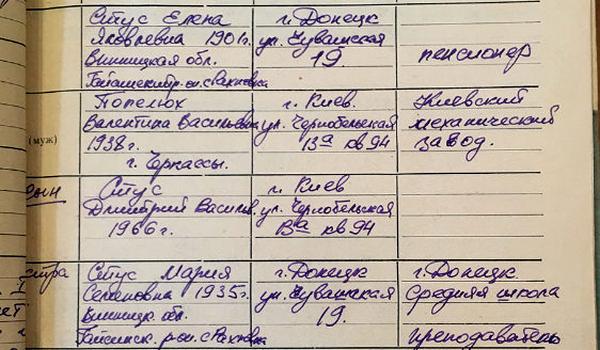 Стус Елена
Яковлевна 1901г.
Винницкая обл.
г. Донецк
ул. Чувашская
19
пенсионер
(муж)
Попелюх
Валентина Васильевн
1938г.
г. Черкассы.
г. Киев.
ул. Чернобельская
13а кв 94
Киевский
механический
завод.
сын
Стус
Дмитрий Васильев.
1966г.
г. Киев
ул. Чернобельская
13а кв 94
стра
Стус Мария
Семеновна 1935г.
Винницк обл.
Гайсинск. р-он. с Рахновка
г. Донецк
ул. Чувашская
19.
г. Донецк.
Средняя школа
преподаватель